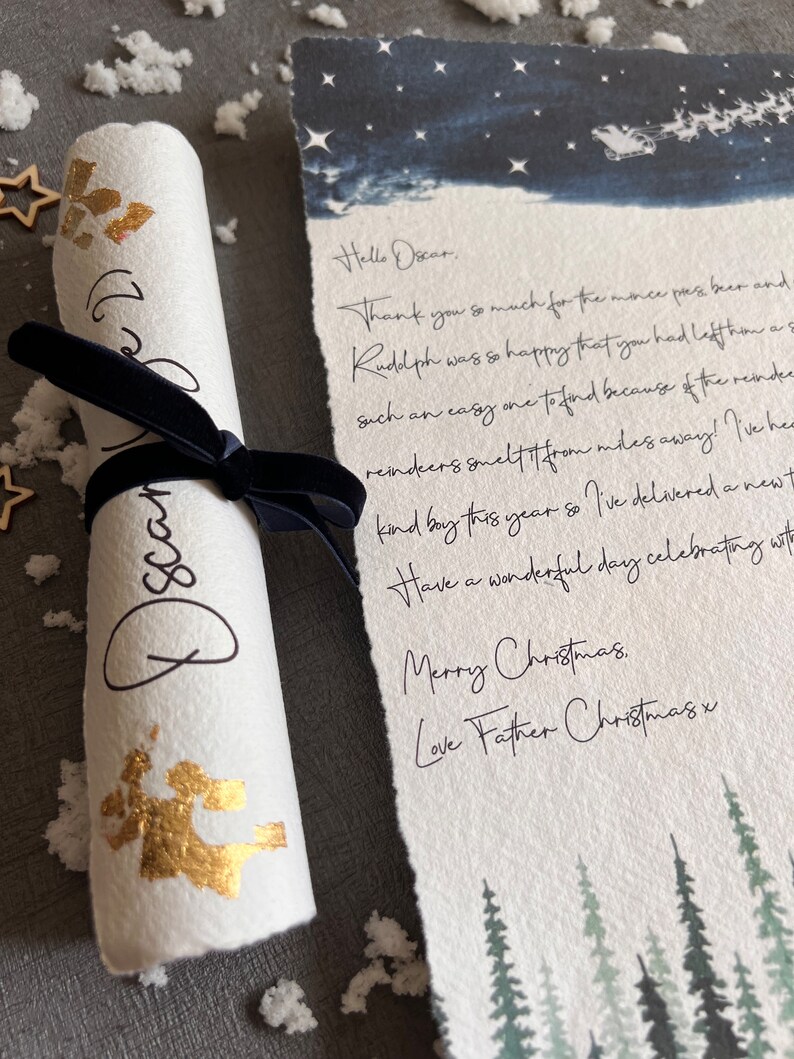 Oscar
Hello Oscar,
Thank you so much for the mince pies, beer and
Rudolph was so happy that you had left him a
such an easy one to find because of the reindee
reindeers smelt it from miles away! I've hea
kind boy this year so I've delivered a new t
Have a wonderful day celebrating with
Merry Christmas,
Love Father Christmas x